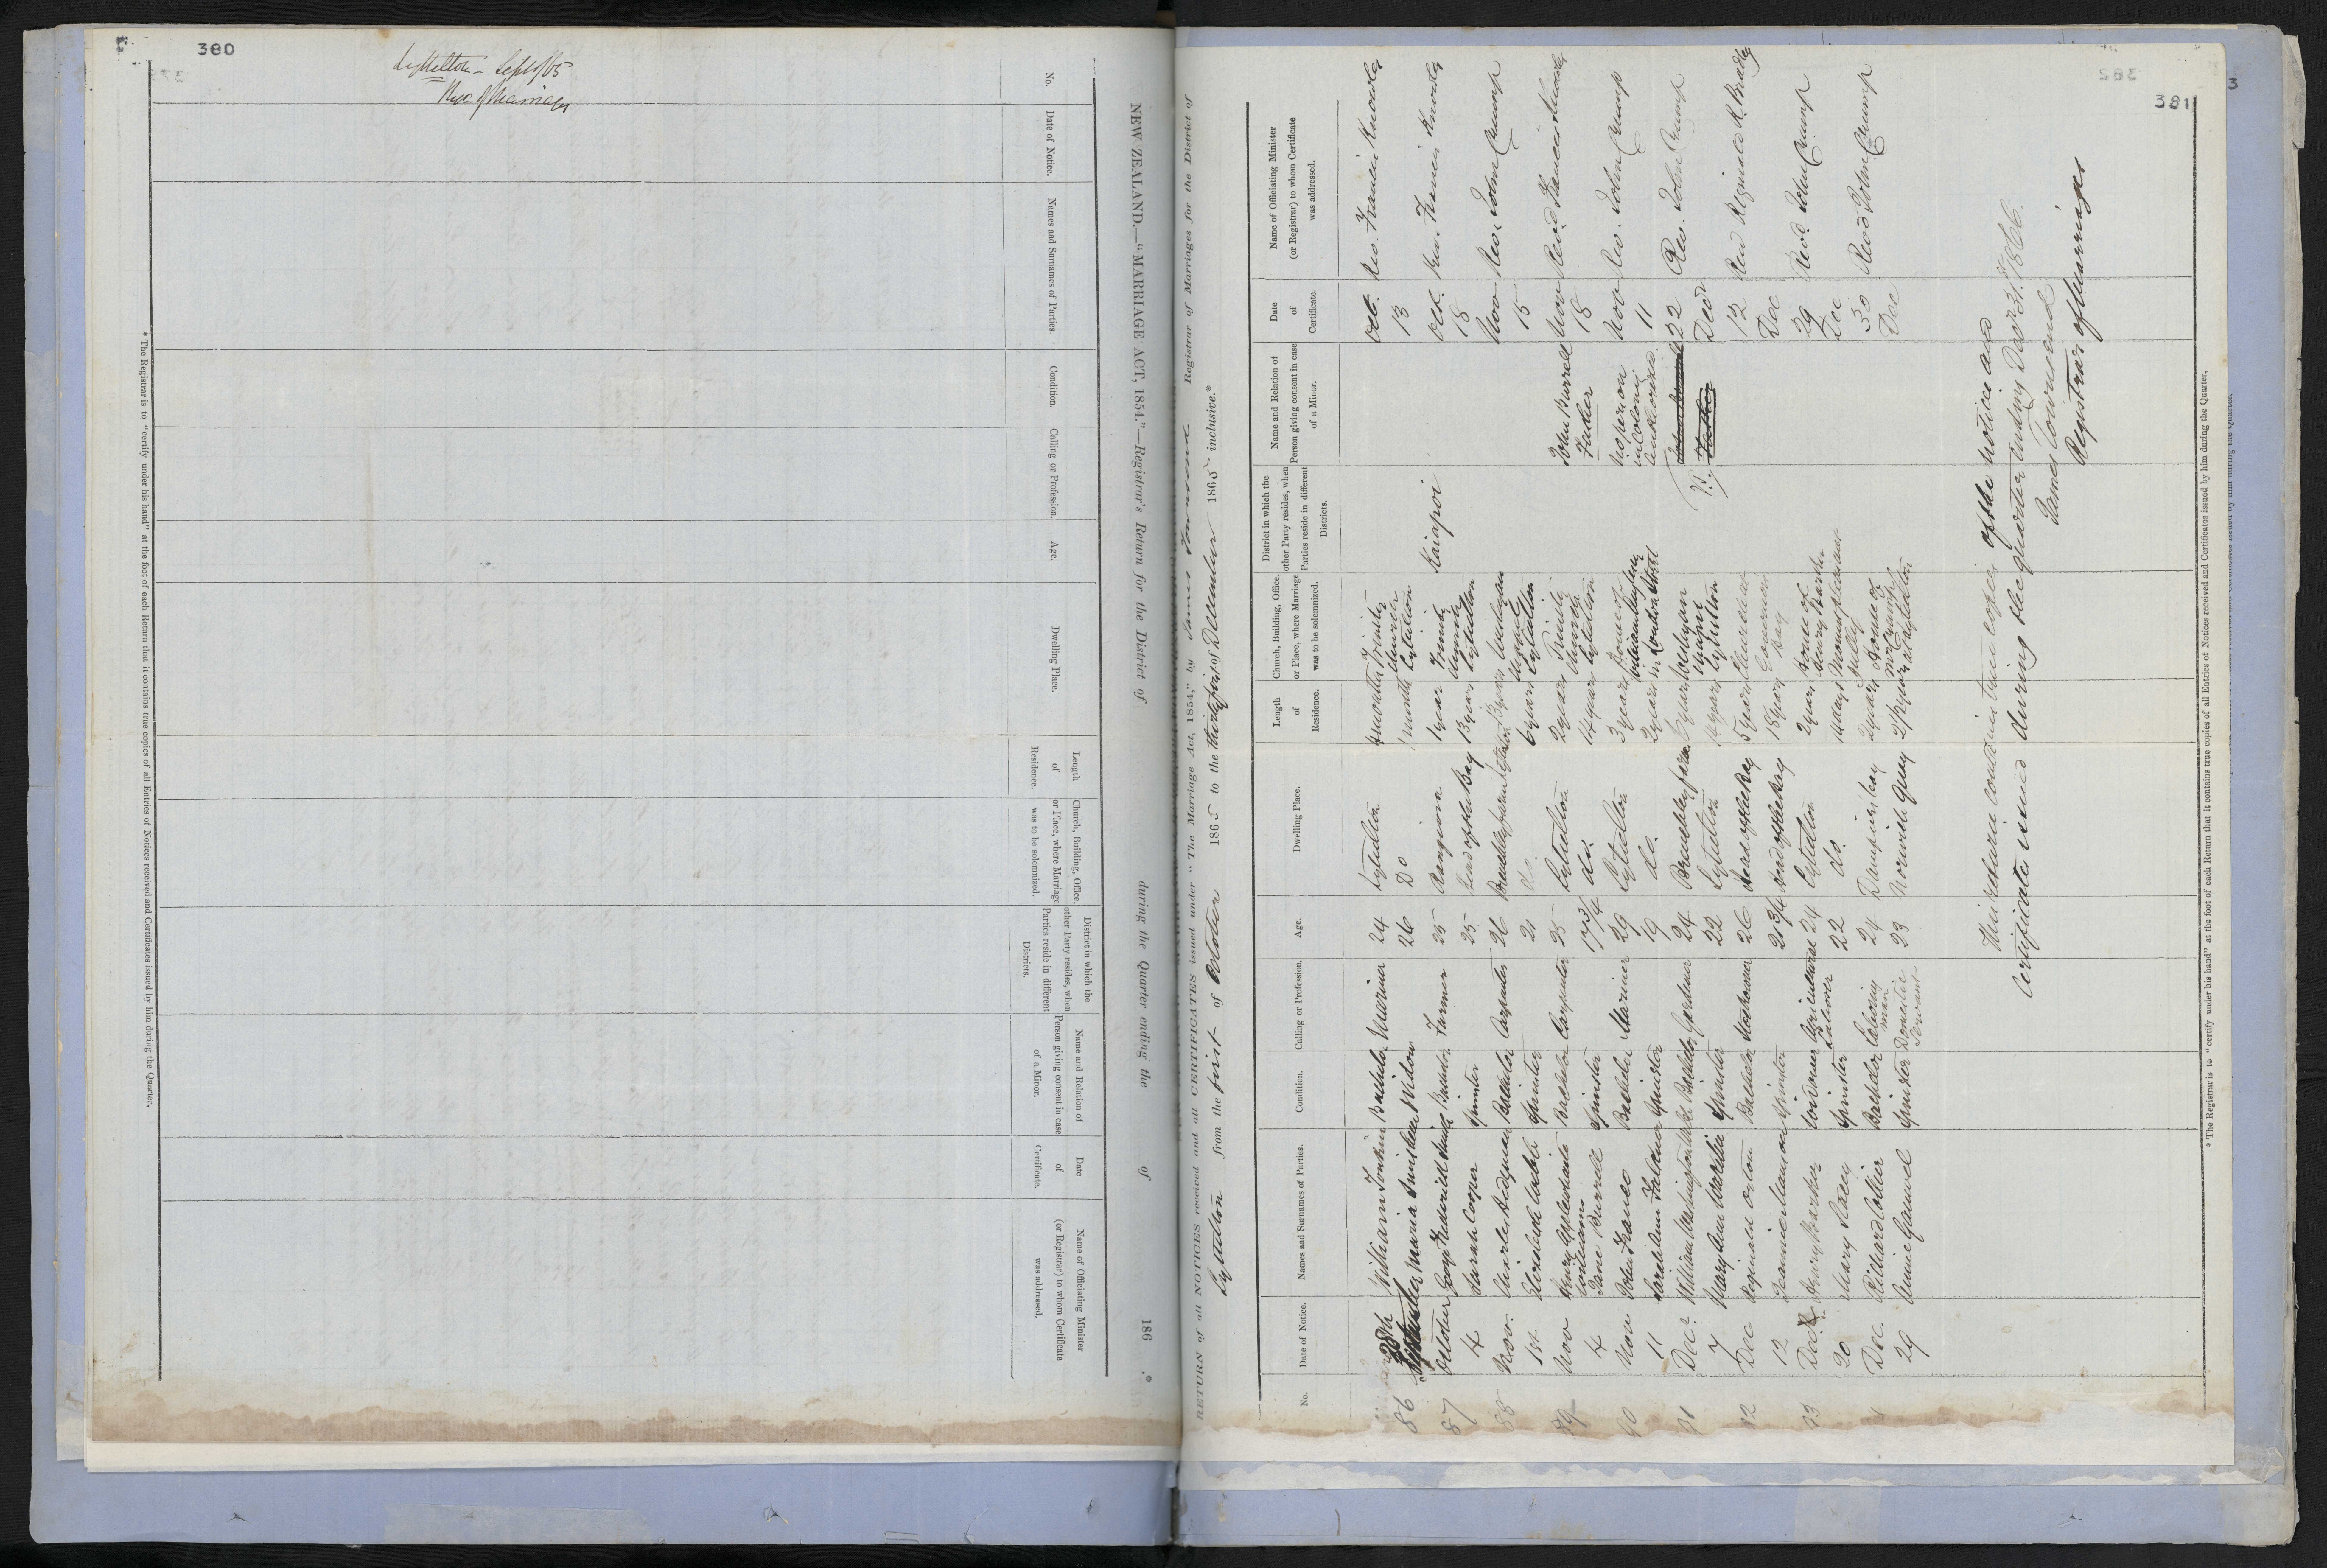 380
Lyttelton - Sept 1865
NEW ZEALAND.—"MARRIAGE ACT, 1854."—Registrar's Return for the District of during the Quarter ending the of 186 .*
No.
Date of Notice.
Names and Surnames of Parties.
Condition.
Calling or Profession.
Age.
Dwelling Place.
Length of Residence.
Church, Building, Office, or Place, where Marriage was to be solemnized.
District in which the other Party resides, when Parties reside in different Districts.
Name and Relation of Person giving consent in case of a Minor.
Date of Certificate.
Name of Officiating Minister (or Registrar) to whom Certificate was addressed.
* The Registrar is to "certify under his hand" at the foot of each Return that it contains true copies of all Entries of Notices received and Certificates issued by him during the Quarter.
381
RETURN of all NOTICES received and all CERTIFICATES issued under "The Marriage Act, 1854," by James Townsend Registrar of Marriages for the District of
Lyttelton from the first of October 1865 to the thirty first of December 1865 inclusive.*
No.
Date of Notice.
Names and Surnames of Parties.
Condition.
Calling or Profession.
Age.
Dwelling Place.
Length of Residence.
Church, Building, Office, or Place, where Marriage was to be solemnized.
District in which the other Party resides, when Parties reside in different Districts.
Name and Relation of Person giving consent in case of a Minor.
Date of Certificate.
Name of Officiating Minister (or Registrar) to whom Certificate was addressed.
86 28th William Tonkin Bachelor Mariner 24 Lyttelton 4 months Trinity Church Lyttelton Oct. 13 Rev. Francis Knowles
Maria Widow 26 Do 1 month
87 October 4 George Frederick Smith Bachelor Farmer 25 Rangiora 1 year Trinity Church Lyttelton Kaiapoi Oct. 18 Rev. Francis Knowles
Sarah Cooper Spinster 25 Head of the Bay 13 years
88 Nov. 14 Charles Hodgman Bachelor Carpenter 26 Lyttelton 3 years Wesleyan Chapel Lyttelton Nov 15 Rev. John Crump
Elizabeth Spinster 21 do. 6 years
89 Nov 4 Henry Williams Bachelor Carpenter 25 Lyttelton 2 years Trinity Church Lyttelton John Burrell Father Nov 18 Revd Francis Knowles
Jane Burrell Spinster 17 3/4 do. 14 years
90 Nov 11 John Franco Bachelor Mariner 29 Lyttelton 3 years House of William in London Street No person in Colony authorized Nov 11 Rev. John Crump
Sarah Ann Falconer Spinster 19 do. 2 years
91 Decr. 7 William Bachelor Gardener 24 Wesleyan Chapel Lyttelton 22 Decr Rev. John Crump
Mary Ann Spinster 22 Lyttelton years
92 Dec 12 Reginald Orton Bachelor 26 Head of the Bay 5 years Church Governors Bay 12 Dec Revd Reginald R. Bradley
Jeannie Manson Spinster 21 3/4 Head of the Bay 15 years
93 Decr. 20 Henry Barker Widower Agricultural Laborer 24 Lyttelton 2 years House of Henry Barker 29 Dec Revd. John Crump
Mary Stacey Spinster 22 do. 14 days
Dec. 29 Richard Collier Bachelor Laboring man 24 2 years House of Mr Crump at Lyttelton 30 Dec Revd John Crump
Annie Spinster Domestic Servant 23 Norwich Quay 2 1/2 years
This return contains true copies of the notices and
Certificates issued during the Quarter ending Decr 31st
James Townsend
Registrar of Marriages
* The Registrar is to "certify under his hand" at the foot of each Return that it contains true copies of all Entries of Notices received and Certificates issued by him during the Quarter.